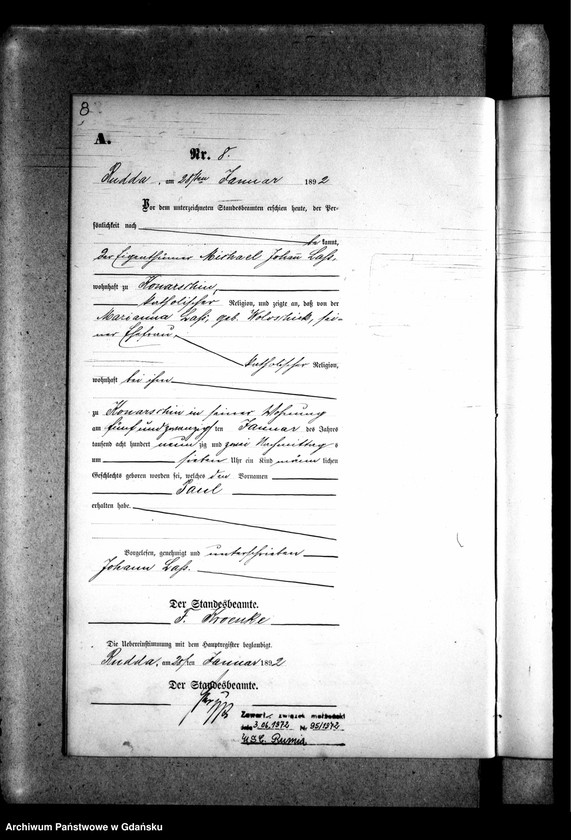 8
A.
Nr. 8.
Rudda, am 28sten Januar 1892
Vor dem unterzeichneten Standesbeamten erschien heute, der Per-
sönlichkeit nach
be kannt,
der Eigenthümer Michael Johann Lass,
wohnhaft zu Konarschin,
katholischer Religion, und zeigte an, daß von der
Marianna Lass, geb. Woloschick, sei-
ner Ehefrau,
katholischer Religion,
wohnhaft bei ihm
zu Konarschin in seiner Wohnung
am fünfundzwanzigsten Januar des Jahres
tausend acht hundert neunzig und zwei Nachmittags
um sieben Uhr ein Kind männlichen
Geschlechts geboren worden sei, welches den Vornamen
Paul
erhalten habe.
Vorgelesen, genehmigt und unterschrieben
Johann Lass.
Der Standesbeamte.
F. Kroenke
Die Uebereinstimmung mit dem Hauptregister beglaubigt.
Rudda, am 28sten Januar 1892
Der Standesbeamte.
Zawarł związek małżeński
dnia 3.06.1972 Nr 95/1972
USC Rumia
Archiwum Państwowe w Gdańsku